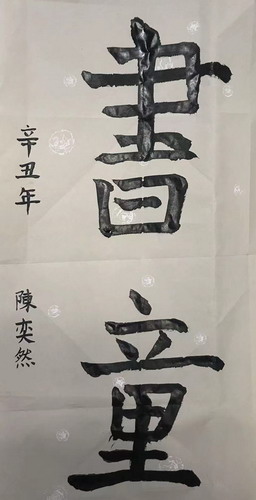 書童
辛丑年
陳奕然